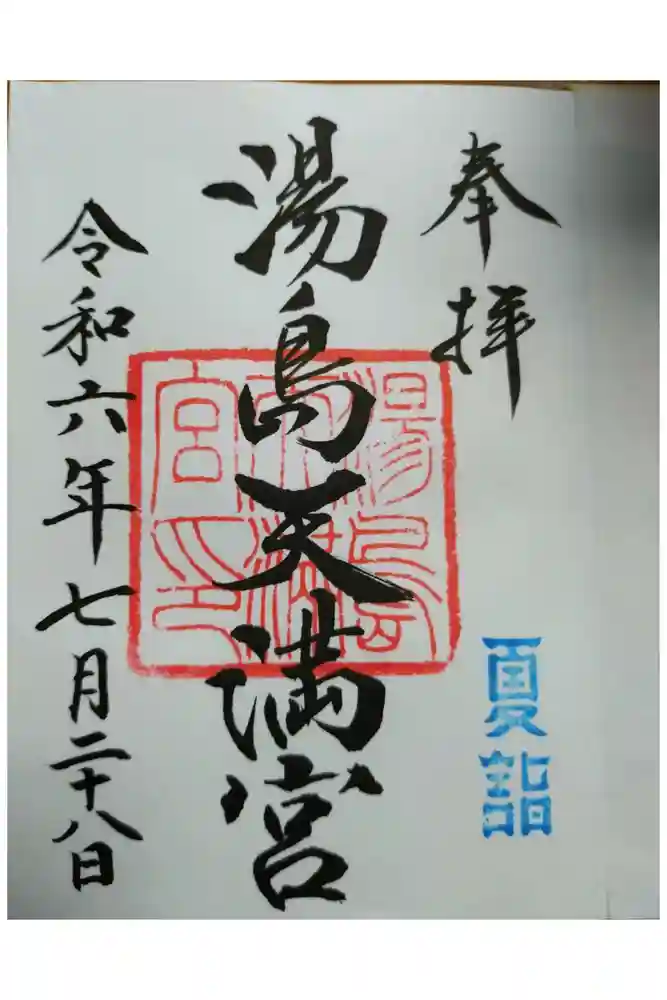 奉拝
夏詣
湯島天満宮
湯島天満宮印
令和六年七月二十八日